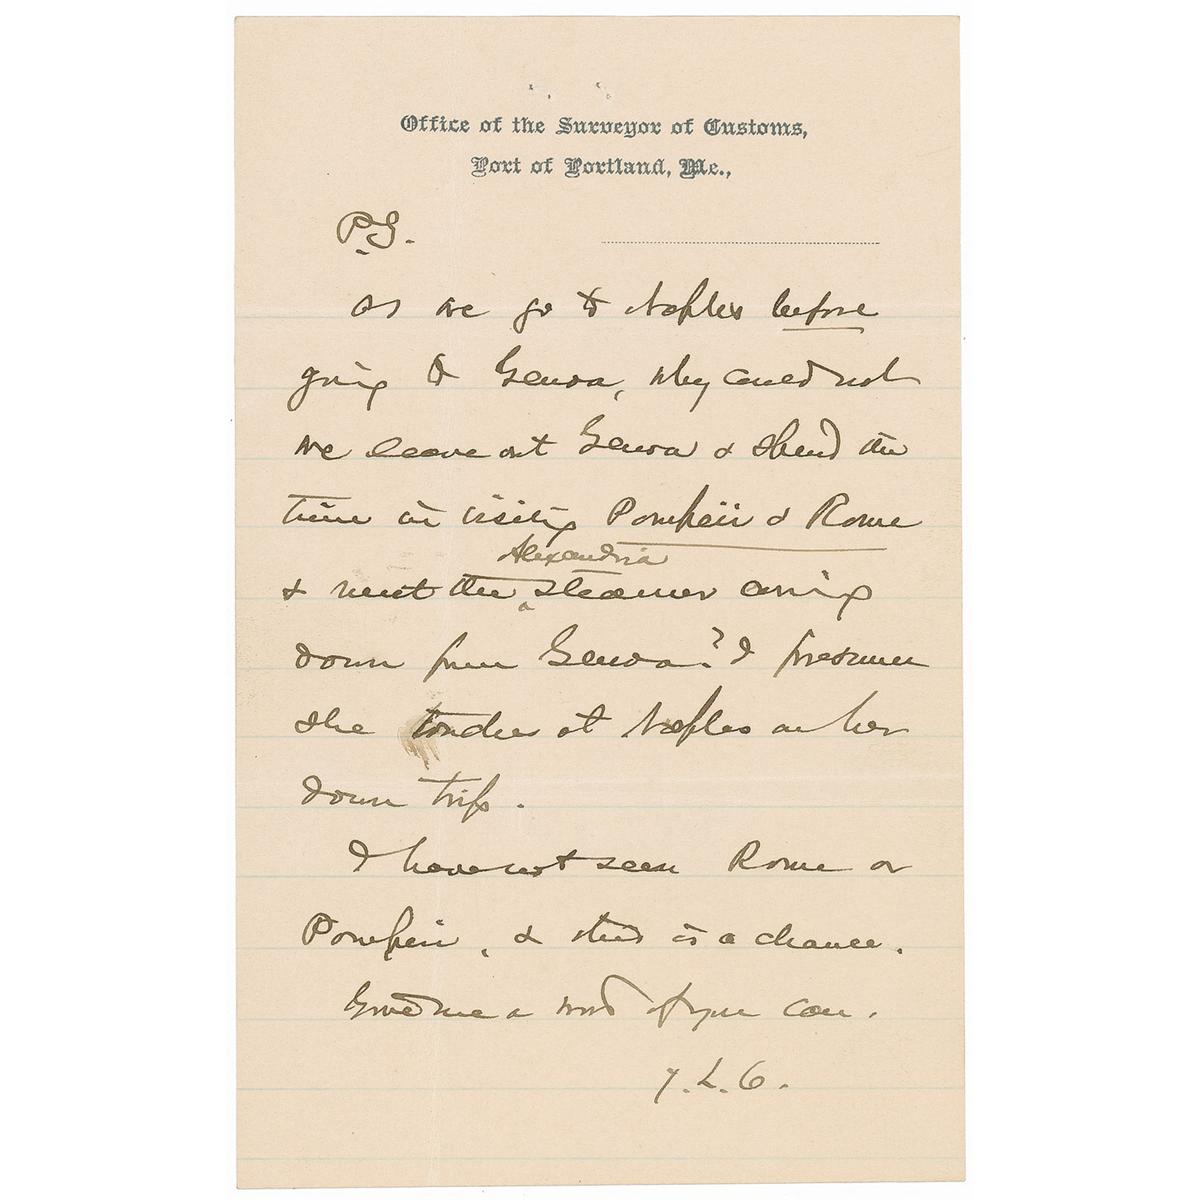 Office of the Surveyor of Customs,
Port of Portland, Me.,
P.S.
as we go to Naples before
going to Genoa, why could not
we leave out Genoa & spend the
time in visiting Pompeii & Rome
Alexandria
& meet the steamer coming
down from Genoa? I presume
she touches at Naples on her
down trip.
I have not seen Rome or
Pompeii, & this is a chance.
Send me a word if you can.
J.L.C.